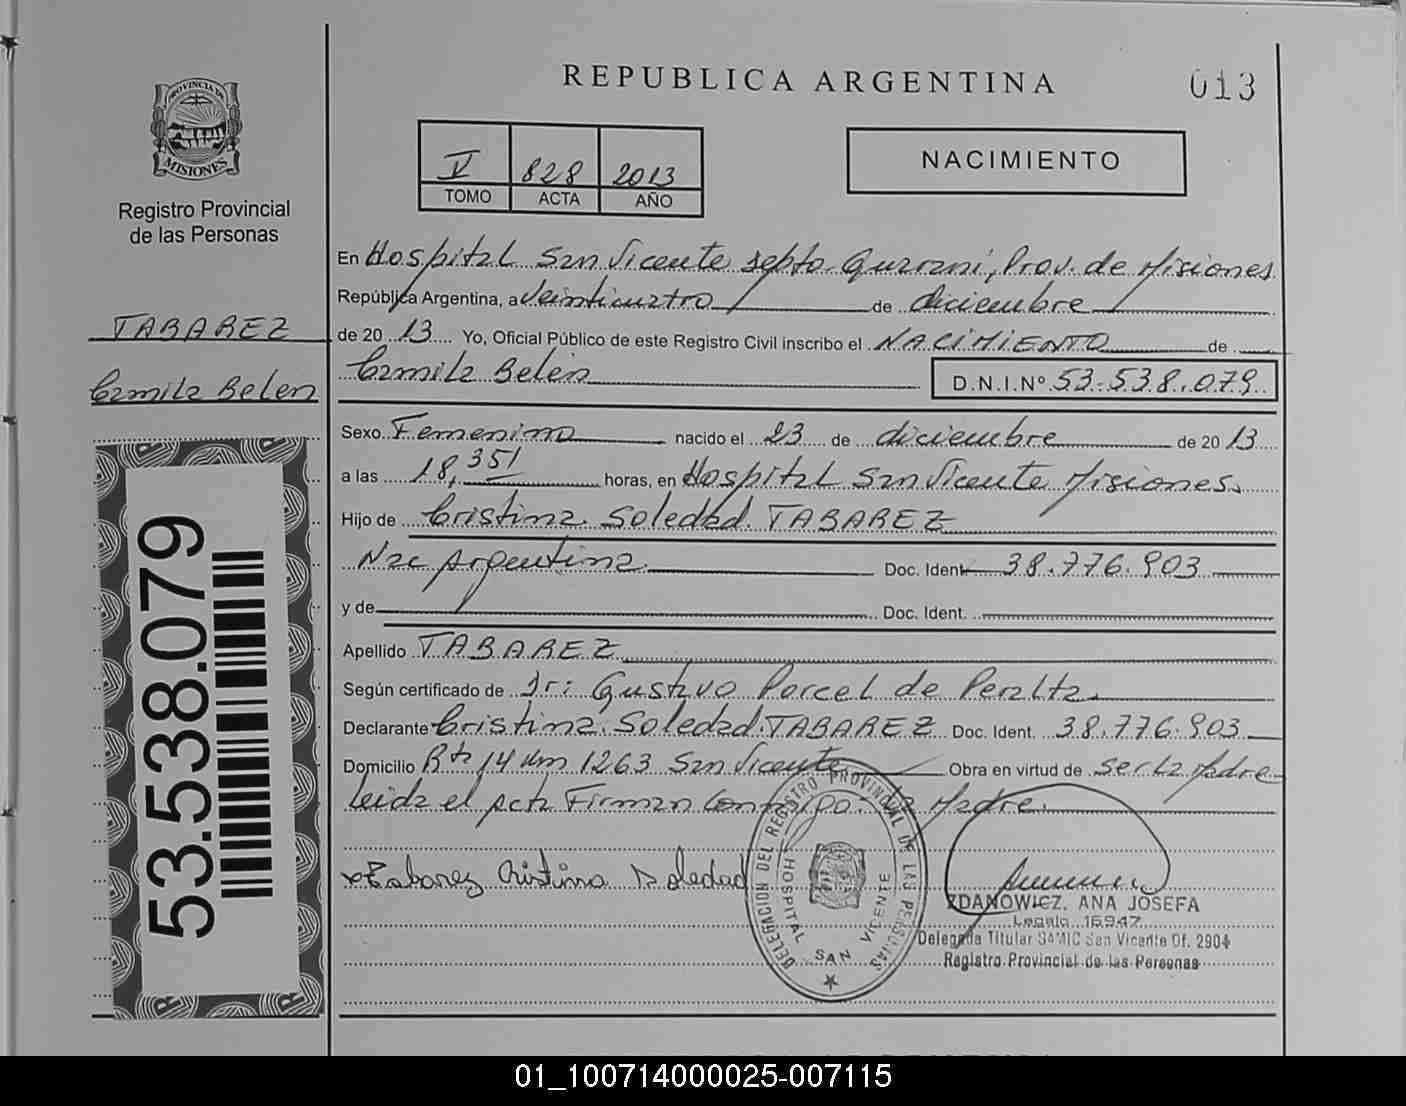 REPUBLICA ARGENTINA
013
PROVINCIA DE
MISIONES
Registro Provincial
de las Personas
V 828 2013
TOMO ACTA AÑO
NACIMIENTO
TABAREZ
Camila Belen
53.538.079
En Hospital San Vicente Depto Guarani, Prov. de Misiones
República Argentina, a Veinticuatro de diciembre
de 2013 Yo, Oficial Público de este Registro Civil inscribo el NACIMIENTO de
Camila Belén D.N.I.Nº 53.538.079
Sexo Femenino nacido el 23 de diciembre de 2013
a las 18,35 horas, en Hospital San Vicente Misiones
Hijo de Cristina Soledad TABAREZ
Nac Argentina Doc. Ident. 38.776.903
y de Doc. Ident.
Apellido TABAREZ
Según certificado de Dr: Gustavo Porcel de Peralta
Declarante Cristina Soledad TABAREZ Doc. Ident. 38.776.903
Domicilio Rta 14 km 1263 San Vicente Obra en virtud de ser La Madre
Leida el acta Firman Conmigo La Madre.
Tabarez Cristina Soledad
DELEGACION DEL REGISTRO PROVINCIAL DE LAS PERSONAS
HOSPITAL SAN VICENTE
ZDANOWICZ, ANA JOSEFA
Legajo 16947
Delegada Titular SAMIC San Vicente Of. 2904
Registro Provincial de las Personas
01_100714000025-007115